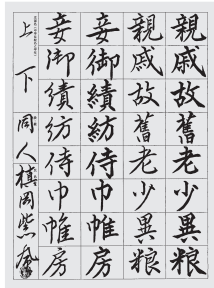 親戚故舊老少異粮
親戚故舊老少異粮
妾御績紡侍巾帷房
妾御績紡侍巾帷房
上下 同人 植岡紫